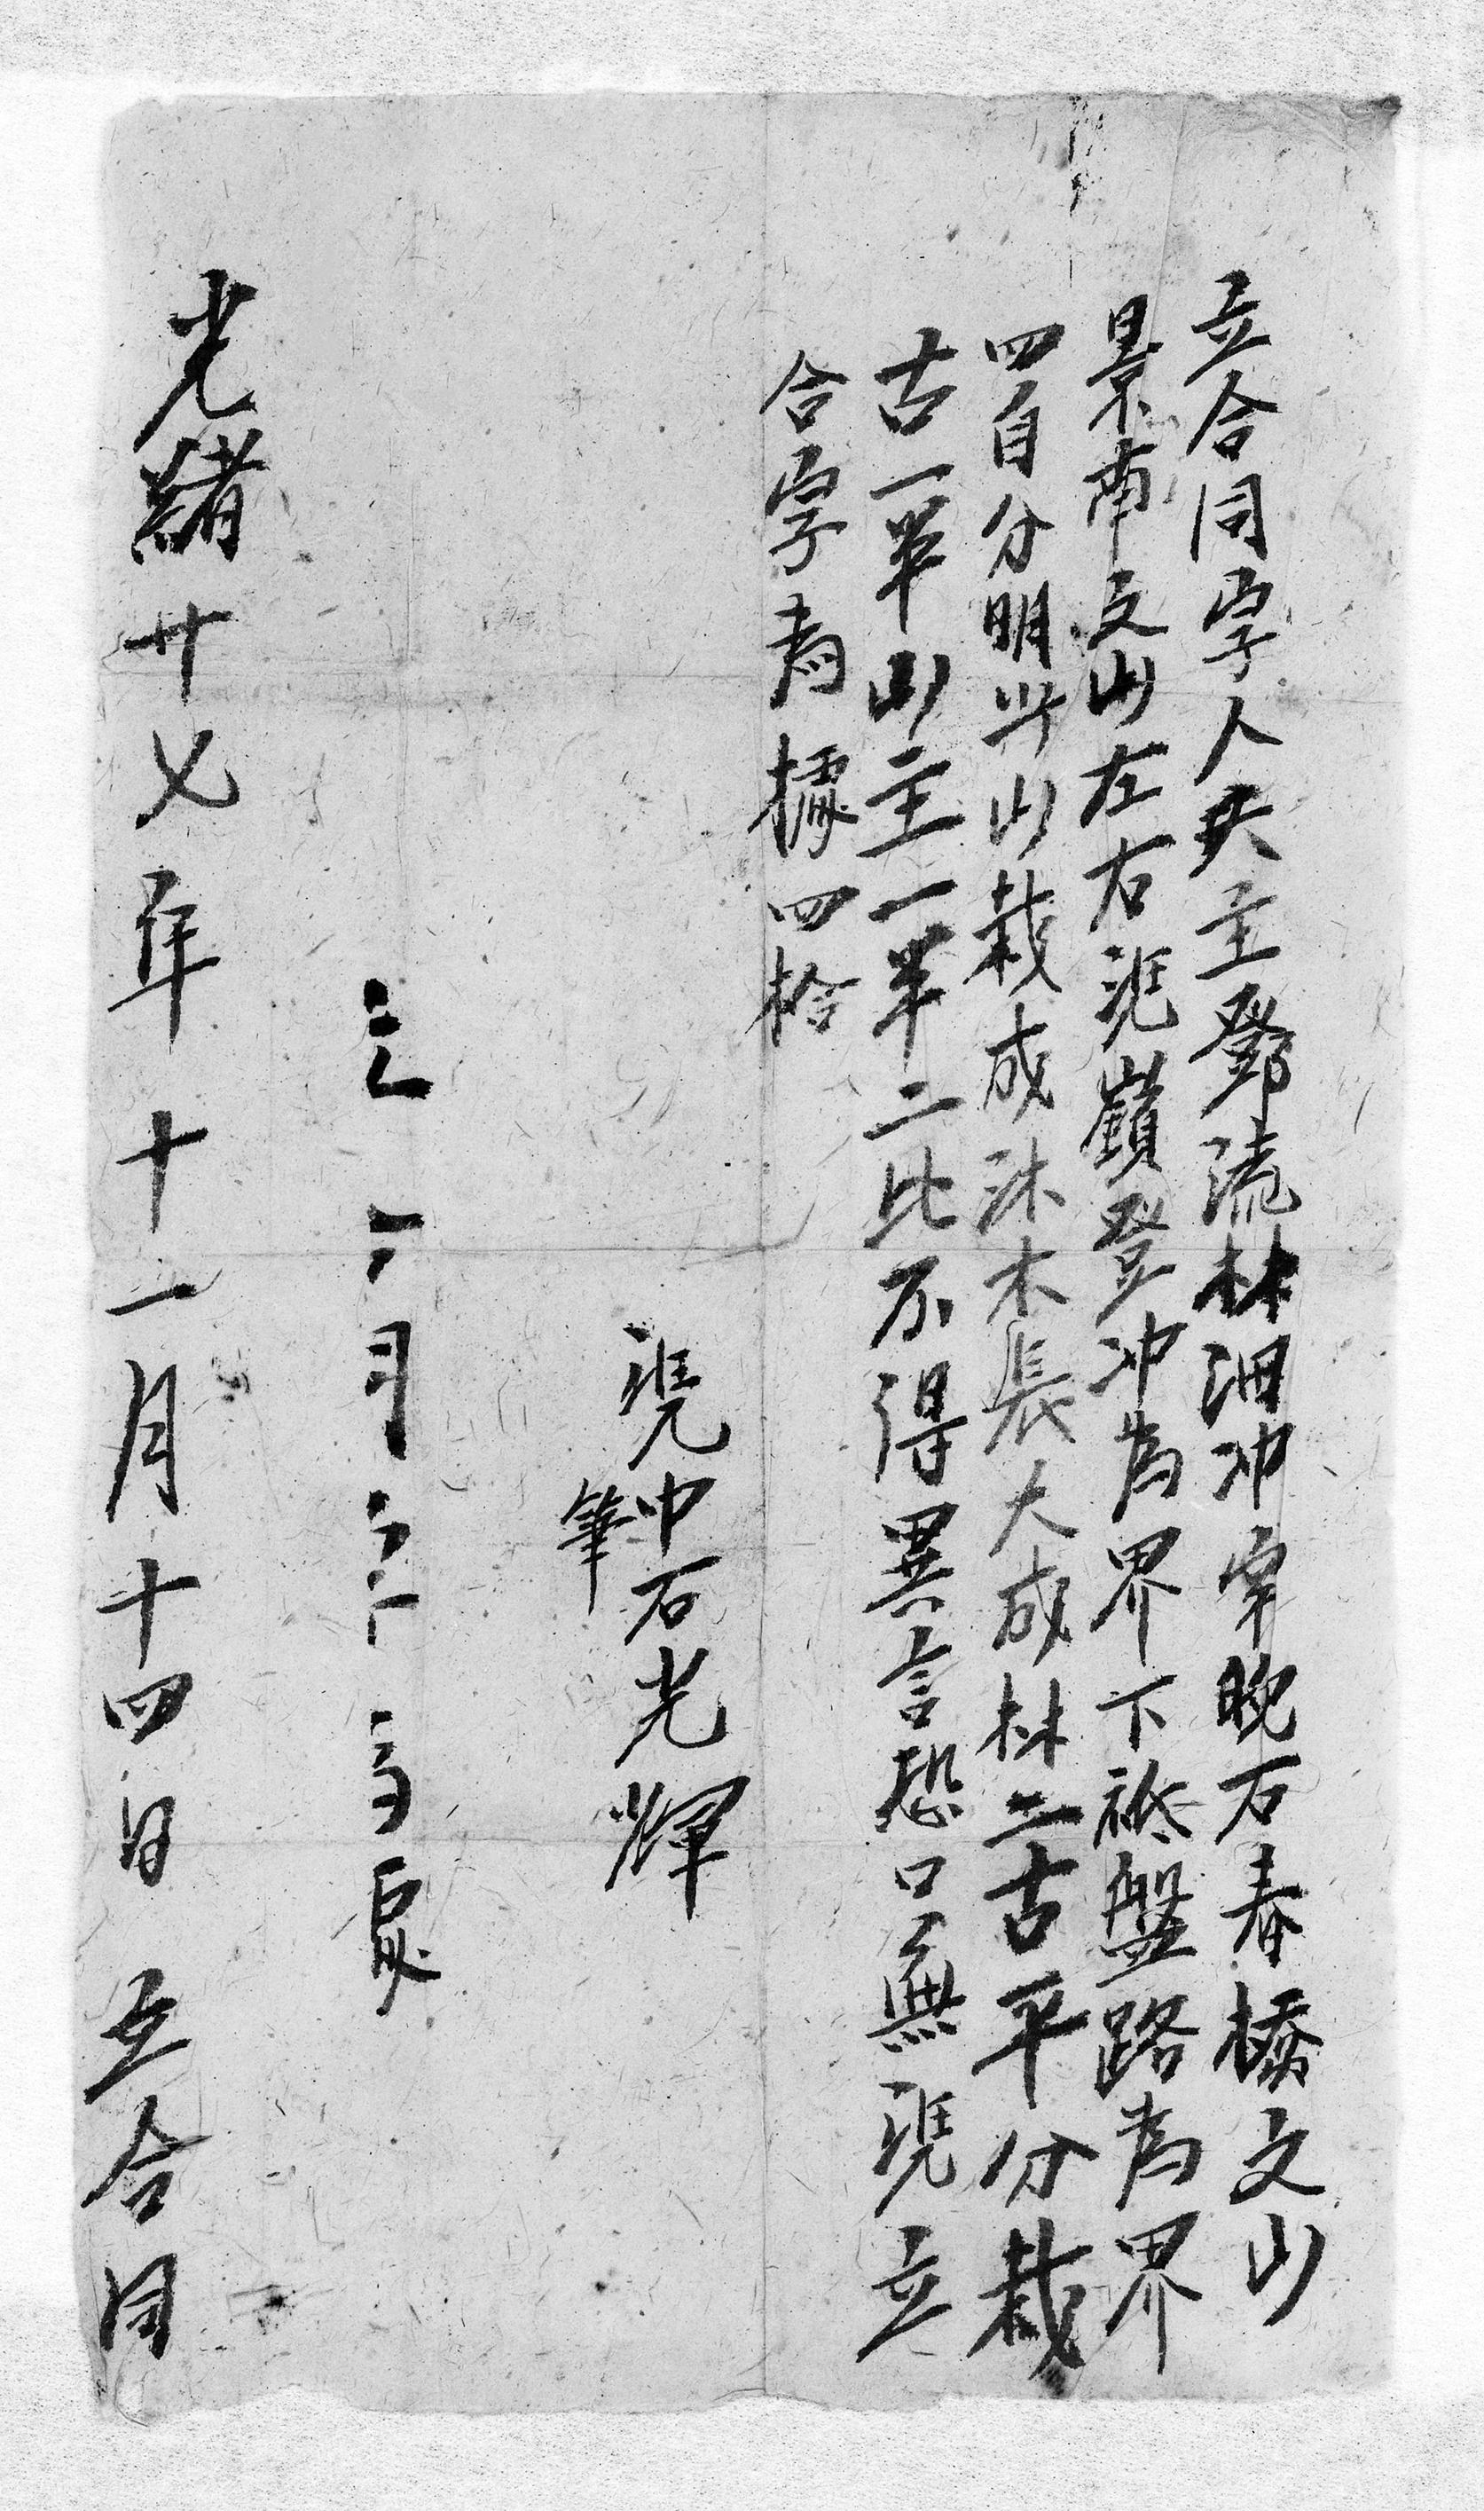 立合同字人天主鄧流林泗冲字晚石春橋文山
景南文山左右凴嶺登冲為界下祗盤路為界
四自分明此山栽成沐木長大成林二古平分栽
古一半山主一半二比不得異言恐口無凴立
合字為據四拾
凴中石光輝
筆
光緒廿七年十一月十四日 立合同